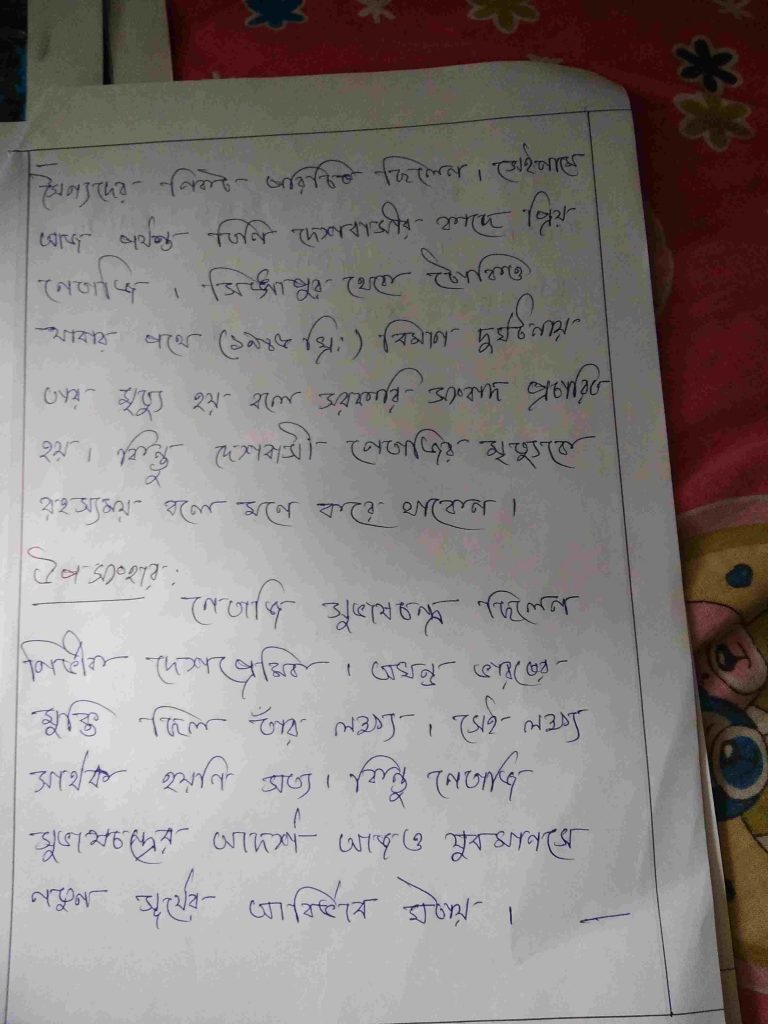 সৈন্যদের নিকট পরিচিত ছিলেন। সেইনামে
আজ পর্যন্ত তিনি দেশবাসীর কাছে প্রিয়
নেতাজি। সিঙ্গাপুর থেকে টোকিও
যাবার পথে (১৯৪৫ খ্রি:) বিমান দুর্ঘটনায়
তার মৃত্যু হয় বলে সরকারি সংবাদ প্রচারিত
হয়। কিন্তু দেশবাসী নেতাজির মৃত্যুকে
রহস্যময় বলে মনে করে থাকেন।
উপসংহার:
নেতাজি সুভাষচন্দ্র ছিলেন
নির্ভীক দেশপ্রেমিক। অখন্ড ভারতের
মুক্তি ছিল তাঁর লক্ষ্য। সেই লক্ষ্য
সার্থক হয়নি সত্য। কিন্তু নেতাজি
সুভাষচন্দ্রের আদর্শ আজও যুবমানসে
নতুন সূর্যের আবির্ভাব ঘটায়।